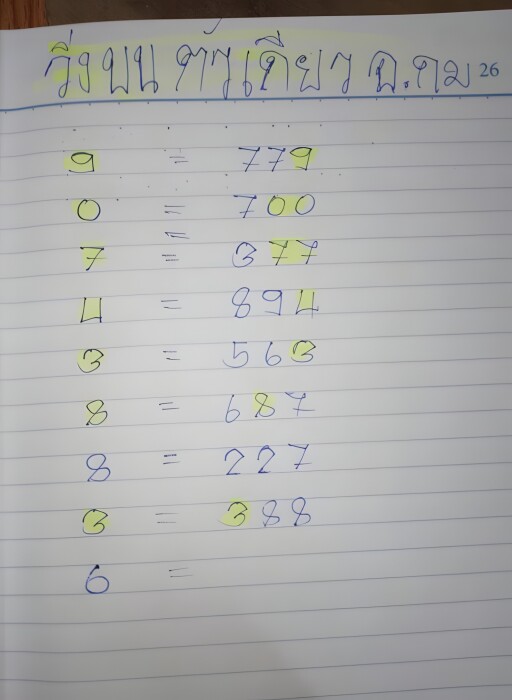 วิ่งบน ตัวเดียว อ.กม 26
9 = 779
0 = 700
=
7 = 377
4 = 894
3 = 563
8 = 687
8 = 227
3 = 388
6 =